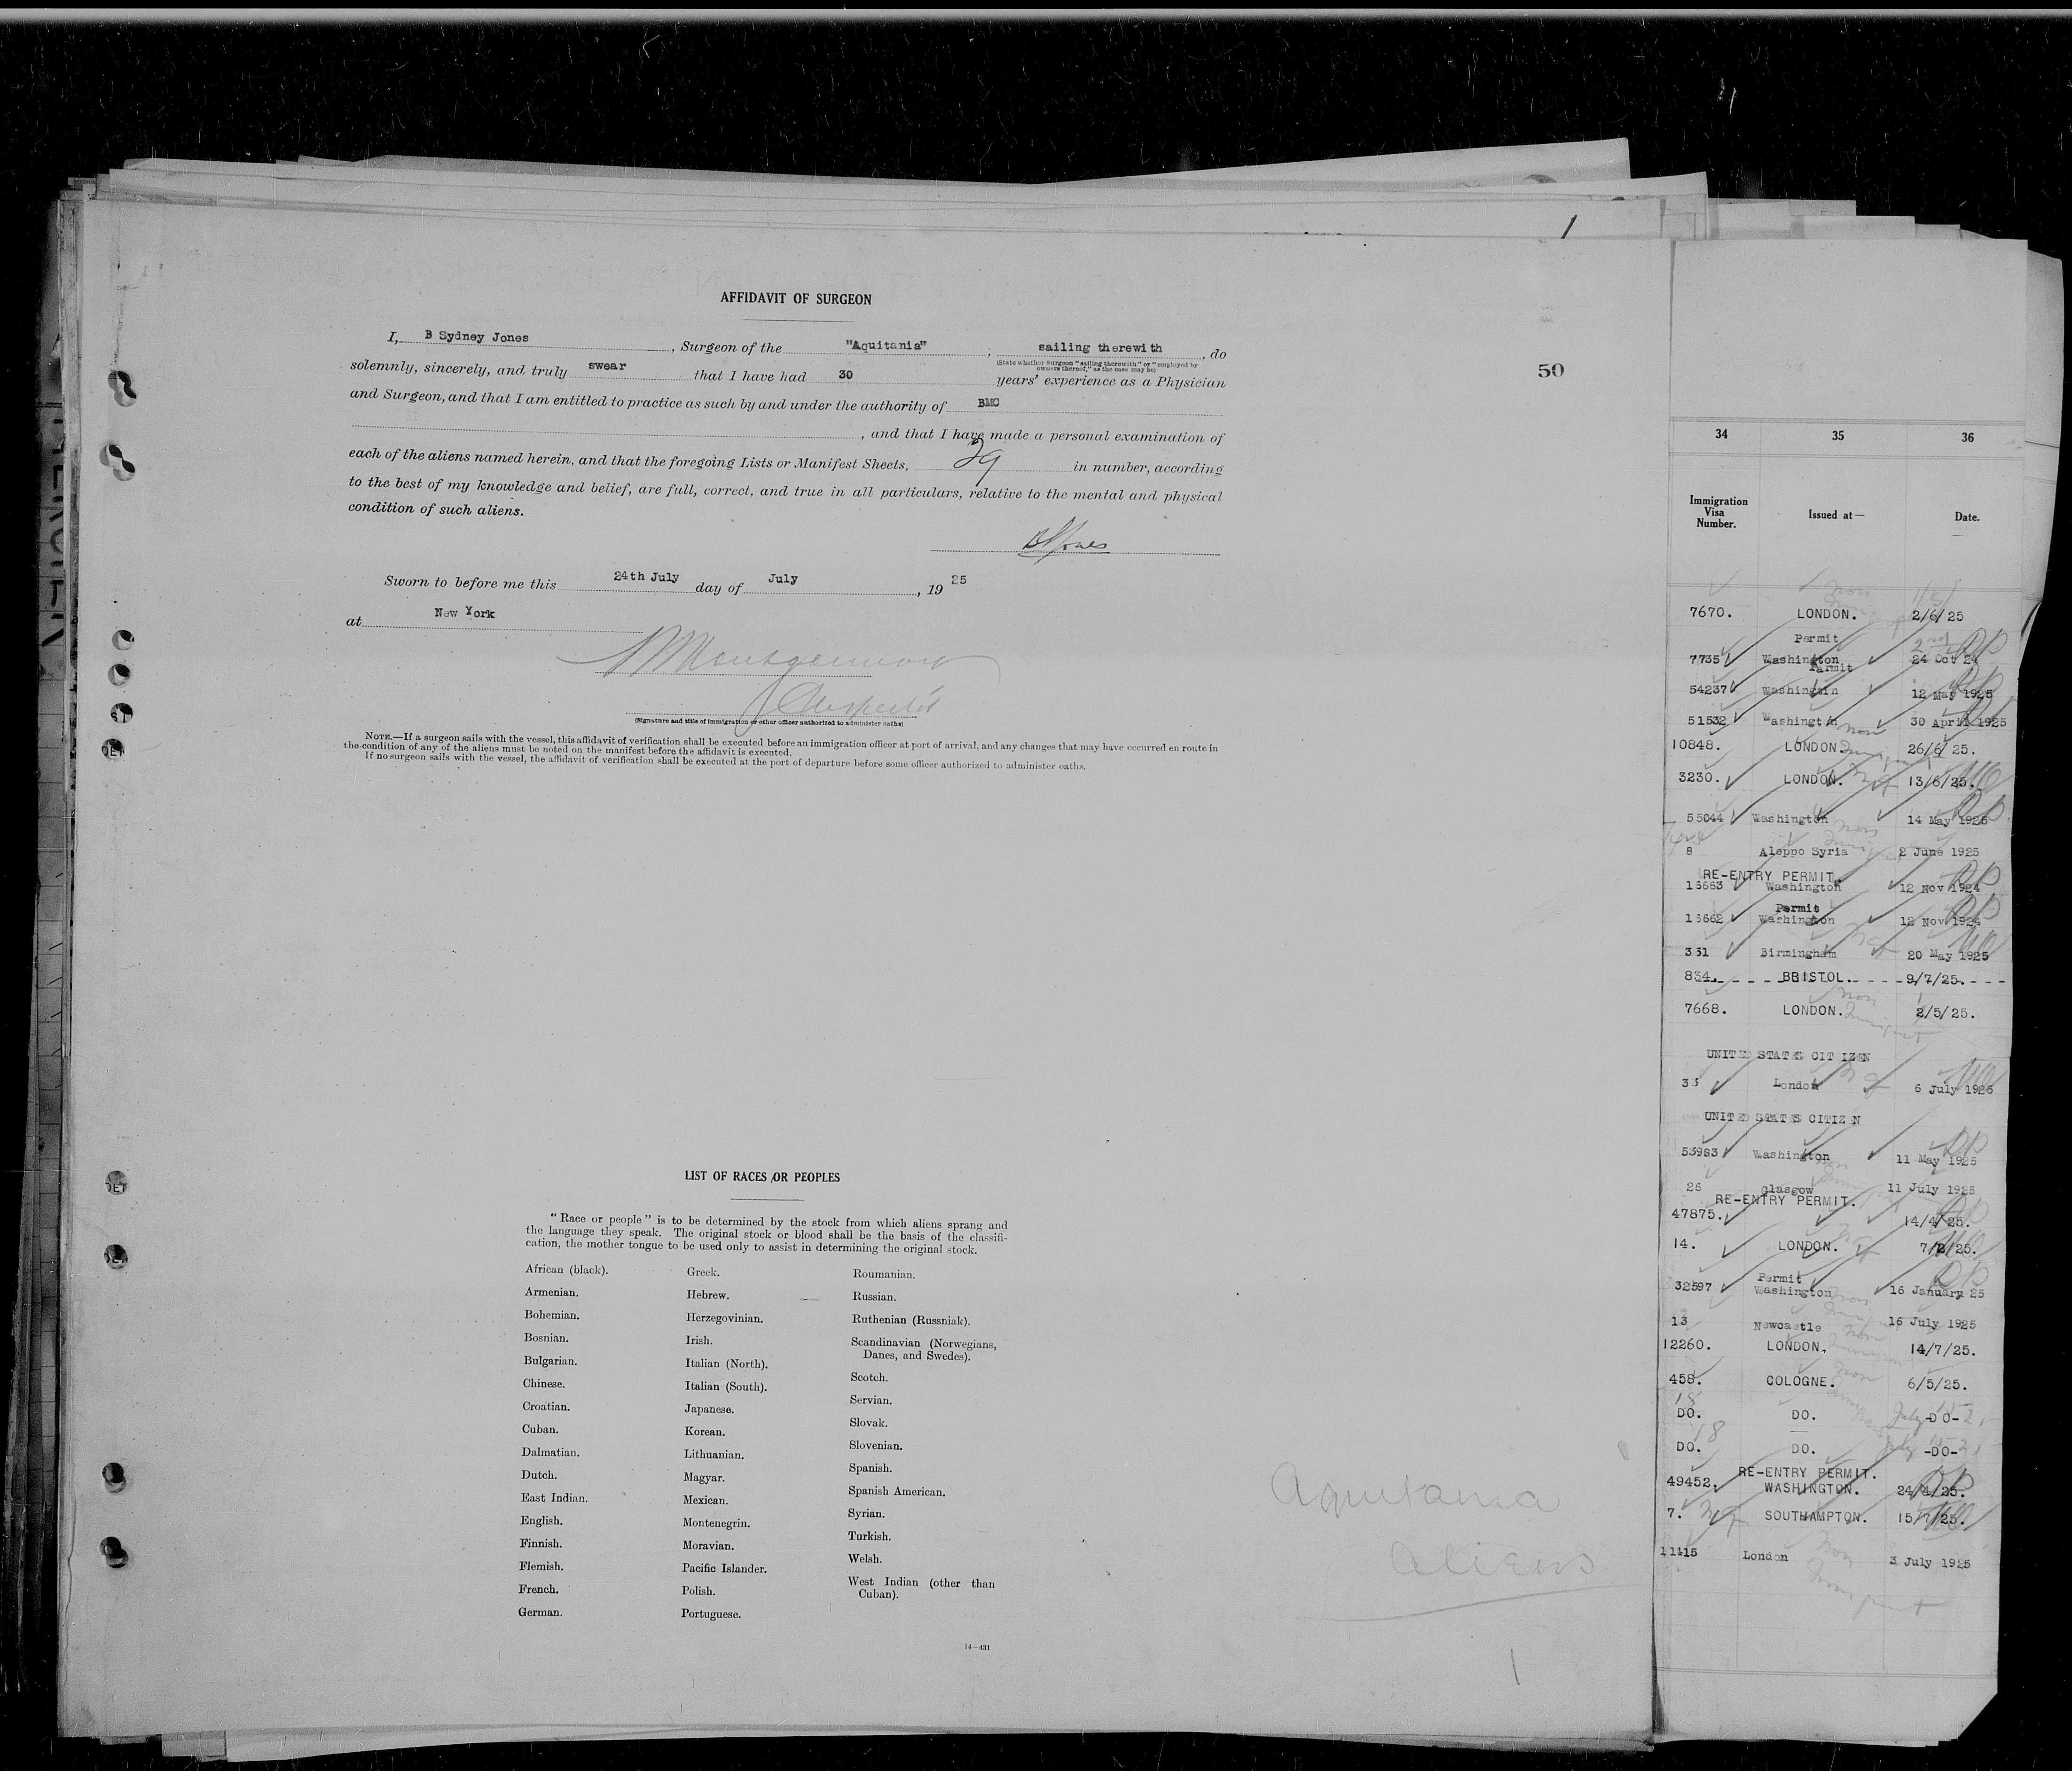 1
AFFIDAVIT OF SURGEON
I, B Sydney Jones, Surgeon of the "Aquitania", sailing therewith, do
(State whether Surgeon "sailing therewith" or "employed by
owners thereof," as the case may be)
solemnly, sincerely, and truly swear that I have had 30 years' experience as a Physician
and Surgeon, and that I am entitled to practice as such by and under the authority of BMC
, and that I have made a personal examination of
each of the aliens named herein, and that the foregoing Lists or Manifest Sheets, 29 in number, according
to the best of my knowledge and belief, are full, correct, and true in all particulars, relative to the mental and physical
condition of such aliens.
BSJones
Sworn to before me this 24th July day of July, 19 25
at New York
Montgomery
Inspector
(Signature and title of immigration or other officer authorized to administer oaths)
NOTE.—If a surgeon sails with the vessel, this affidavit of verification shall be executed before an immigration officer at port of arrival, and any changes that may have occurred en route in
the condition of any of the aliens must be noted on the manifest before the affidavit is executed.
If no surgeon sails with the vessel, the affidavit of verification shall be executed at the port of departure before some officer authorized to administer oaths.
50
LIST OF RACES OR PEOPLES
"Race or people" is to be determined by the stock from which aliens sprang and
the language they speak. The original stock or blood shall be the basis of the classifi-
cation, the mother tongue to be used only to assist in determining the original stock.
African (black).
Armenian.
Bohemian.
Bosnian.
Bulgarian.
Chinese.
Croatian.
Cuban.
Dalmatian.
Dutch.
East Indian.
English.
Finnish.
Flemish.
French.
German.
Greek.
Hebrew.
Herzegovinian.
Irish.
Italian (North).
Italian (South).
Japanese.
Korean.
Lithuanian.
Magyar.
Mexican.
Montenegrin.
Moravian.
Pacific Islander.
Polish.
Portuguese.
Roumanian.
Russian.
Ruthenian (Russniak).
Scandinavian (Norwegians,
Danes, and Swedes).
Scotch.
Servian.
Slovak.
Slovenian.
Spanish.
Spanish American.
Syrian.
Turkish.
Welsh.
West Indian (other than
Cuban).
14—431
Aquitania
Aliens
1
34 35 36
Immigration
Visa
Number.
Issued at—
Date.
7670. LONDON. 2/6/25
Permit
7735 Washington 24 Oct 24
Permit
54237 Washington 12 May 1925
51532 Washington 30 April 1925
10848. LONDON. 26/6/25.
3230. LONDON. 13/6/25.
55044 Washington 14 May 1925
8 Aleppo Syria 2 June 1925
RE-ENTRY PERMIT
16663 Washington 12 Nov 1924
Permit
16662 Washington 12 Nov 1924
331 Birmingham 20 May 1925
834. BRISTOL. 9/7/25.
7668. LONDON. 2/5/25.
UNITED STATES CITIZEN
33 London 6 July 1925
UNITED STATES CITIZEN
53983 Washington 11 May 1925
26 Glasgow 11 July 1925
RE-ENTRY PERMIT.
47875. 14/4/25.
14. LONDON. 7/2/25.
Permit
32597 Washington 16 January 25
13 Newcastle 16 July 1925
12260. LONDON. 14/7/25.
458. COLOGNE. 6/5/25.
18
DO. DO. -DO-
18
DO. DO. -DO-
RE-ENTRY PERMIT.
49452. WASHINGTON. 24/4/25.
7. SOUTHAMPTON. 15/7/25.
11415 London 3 July 1925